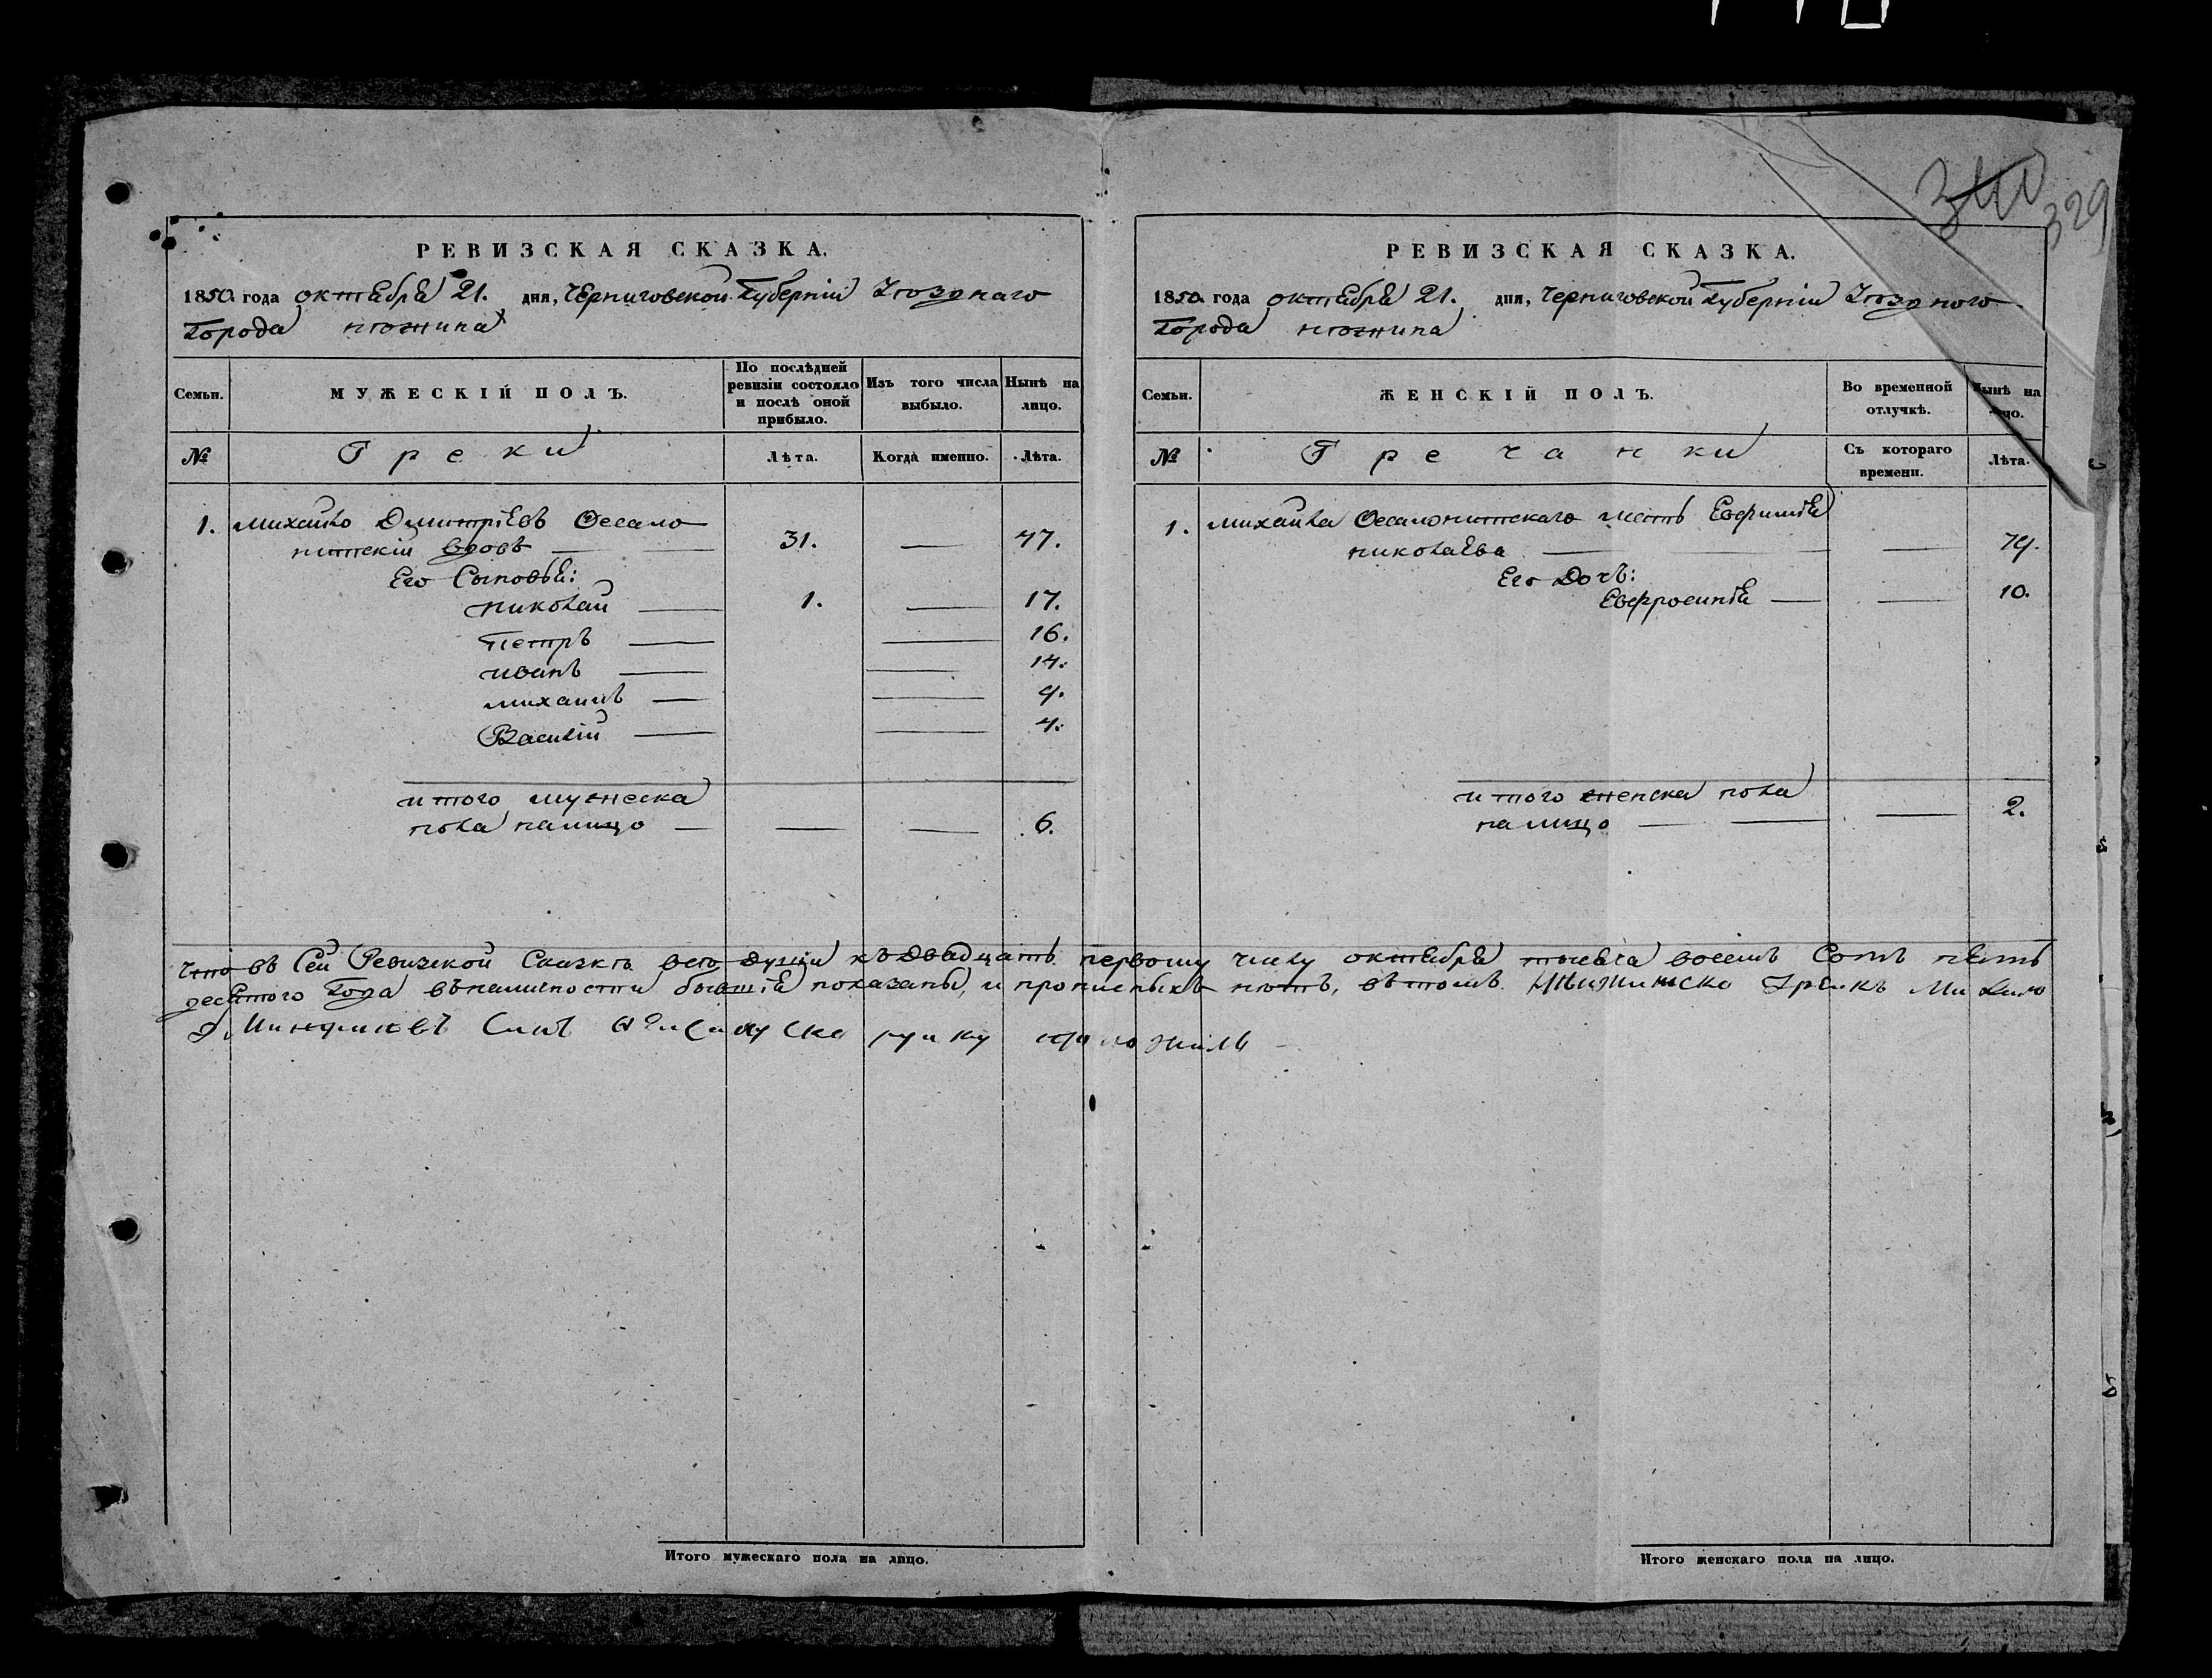 340
329
РЕВИЗСКАЯ СКАЗКА.
1850 года октября 21. дня, Черниговской Губерніи Уѣзднаго
Города Нѣжина
Семьи.
МУЖЕСКІЙ ПОЛЪ.
По послѣдней ревизіи состояло и послѣ оной прибыло.
Изъ того числа выбыло.
Нынѣ на лицо.
№
Греки
Лѣта.
Когда именно.
Лѣта.
1. Михайло Дмитріевъ Ѳесало
нитскій вдовъ — 31. — 47.
Его Сыновья:
Николай — 1. — 17.
Петръ — — 16.
Иванъ — — 14.
Михаилъ — — 9.
Василій — — 4.
итого мужеска
пола налицо — — — 6.
РЕВИЗСКАЯ СКАЗКА.
1850 года октября 21. дня, Черниговской Губерніи Уѣздного
Города Нѣжина
Семьи.
ЖЕНСКІЙ ПОЛЪ.
Во временной отлучкѣ.
Нынѣ на лицо.
№
Гречанки
Съ котораго времени.
Лѣта.
1. Михайла Ѳесалонитскаго мать Евфимія
Николаева — — 79.
Его Дочь:
Евфросинія — — 10.
итого женска пола
налицо — — 2.
Что въ Сей Ревизской Сказкѣ всѣ души къ двадцать первому числу октября тысяча восемь Сотъ пять
десятого Года въналичности бывшія показаны, и прописныхъ нѣтъ, въ томъ Грекъ
Сынъ руку приложилъ
Итого мужескаго пола на лицо.
Итого женскаго пола на лицо.